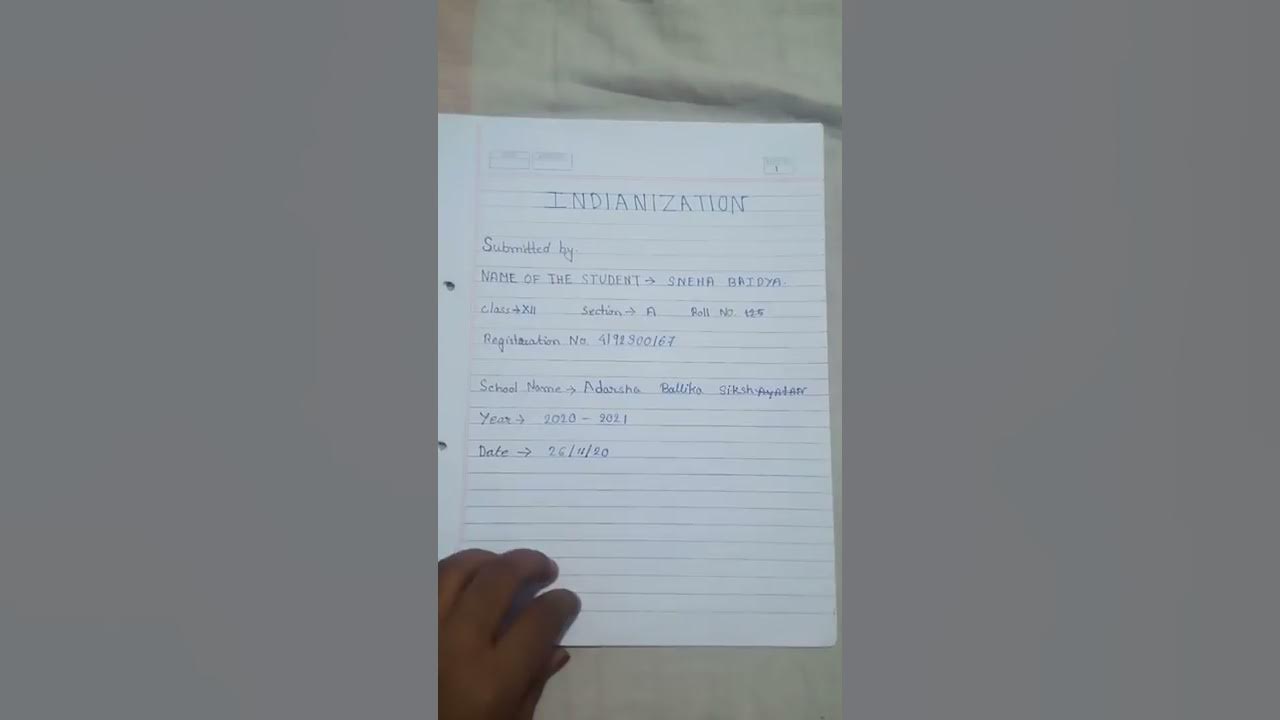 1
INDIANIZATION
Submitted by.
NAME OF THE STUDENT → SNEHA BAIDYA.
Class → XII Section → A Roll No. 125
Registration No. 4192300167
School Name → Adarsha Ballika Sikshayatan
Year → 2020 - 2021
Date → 26/11/20